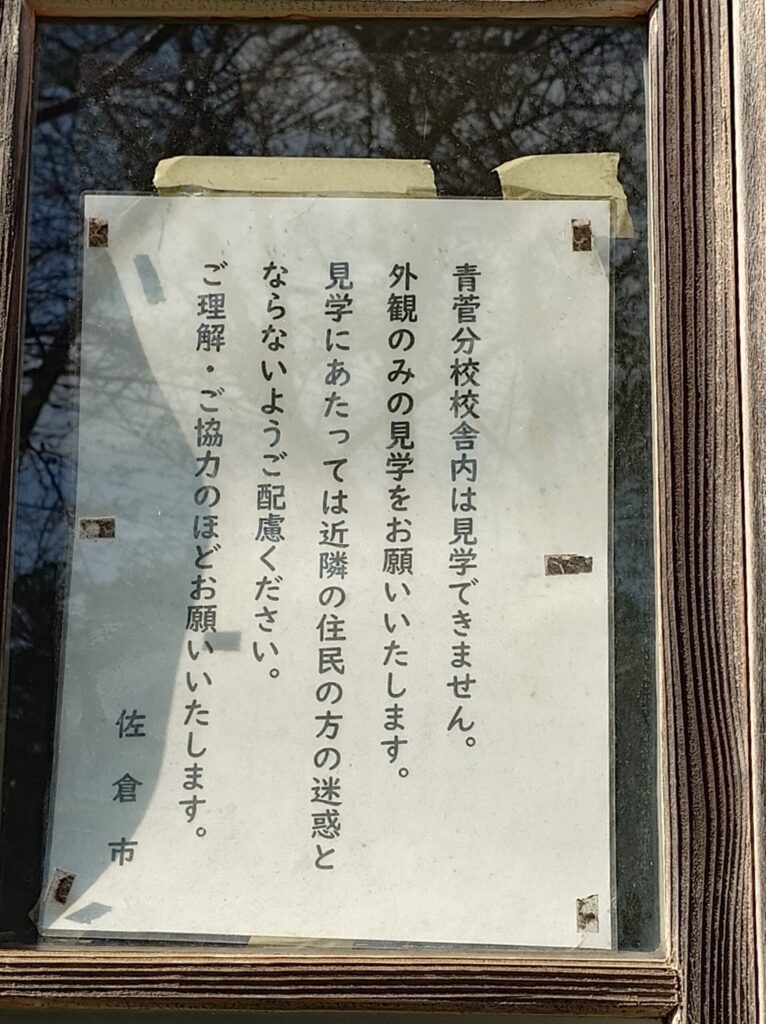 青菅分校校舎内は見学できません。
外観のみの見学をお願いいたします。
見学にあたっては近隣の住民の方の迷惑と
ならないようご配慮ください。
ご理解・ご協力のほどお願いいたします。
佐倉市